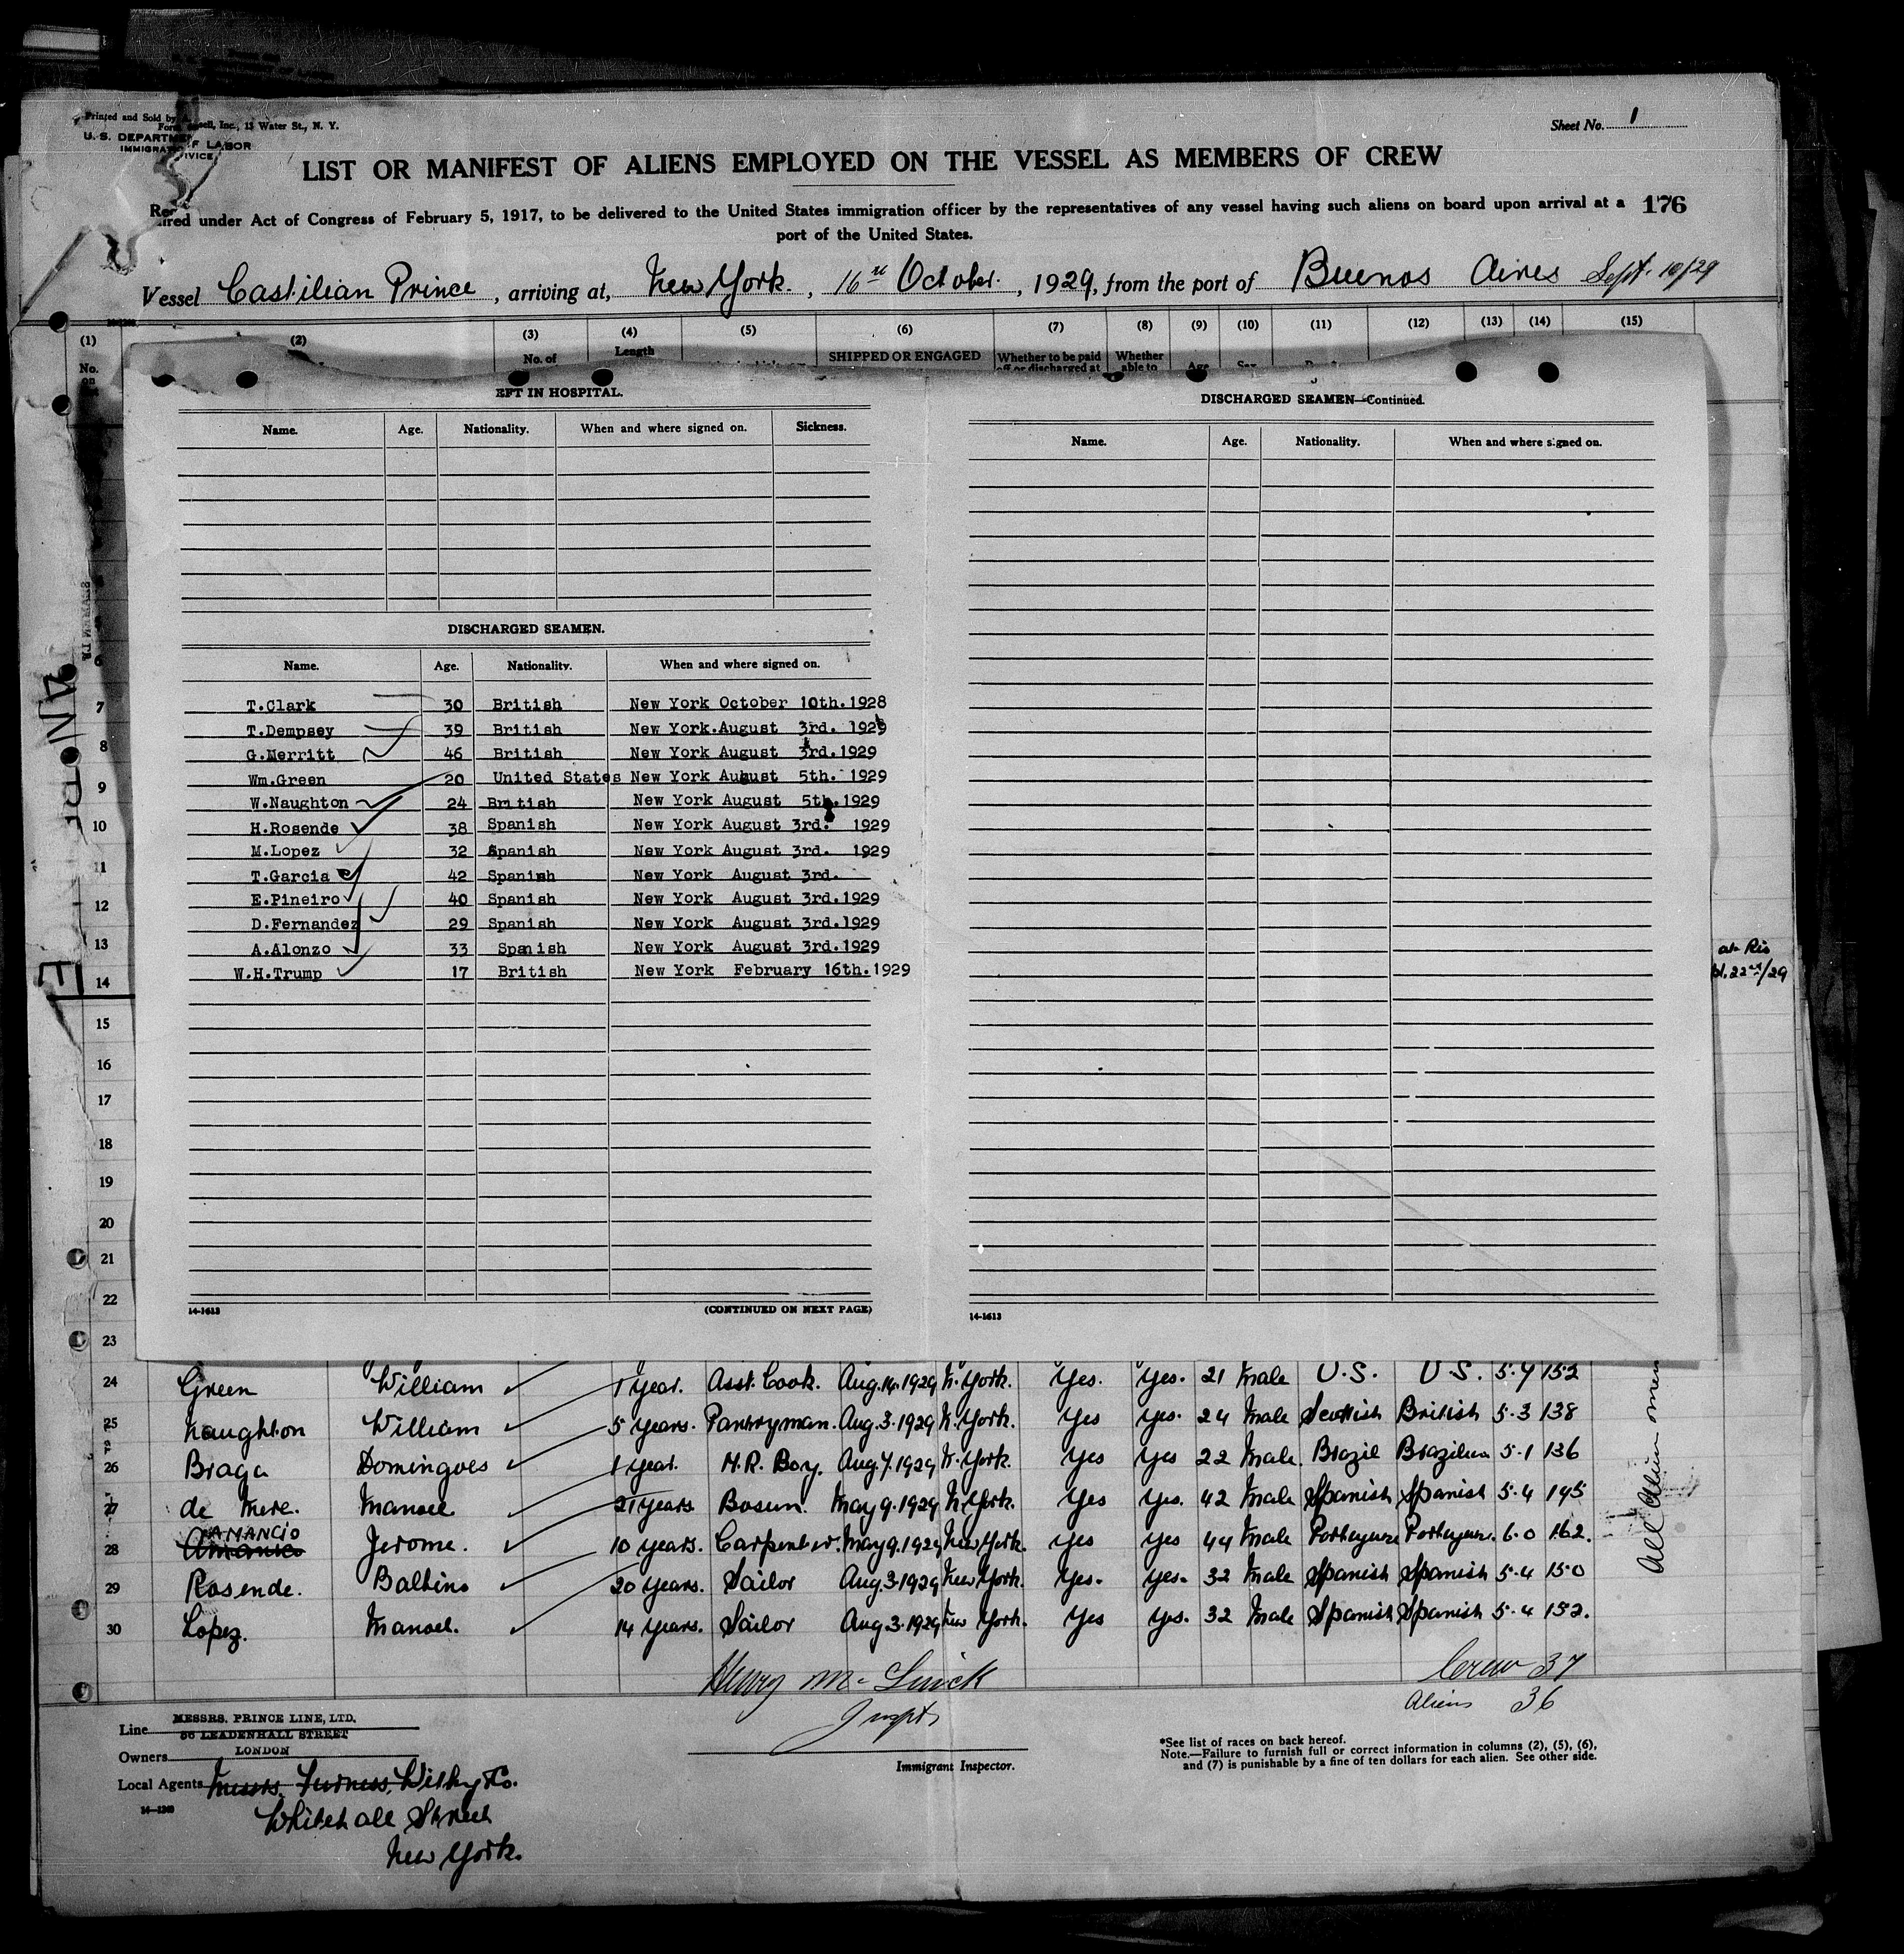 Sheet No. 1
Printed and Sold by
Inc., 13 Water St., N. Y.
U. S. DEPARTMENT OF LABOR
LIST OR MANIFEST OF ALIENS EMPLOYED ON THE VESSEL AS MEMBERS OF CREW
176
under Act of Congress of February 5, 1917, to be delivered to the United States immigration officer by the representatives of any vessel having such aliens on board upon arrival at a
port of the United States.
Vessel Castilian Prince, arriving at, New York., 16 October., 1929, from the port of Buenos Aires Sept. 10/29
(1) (2) (3) (4) (5) (6) (7) (8) (9) (10) (11) (12) (13) (14) (15)
No. on No. of Length SHIPPED OR ENGAGED Whether to be paid off or discharged at Whether able to Age Sex
EFT IN HOSPITAL.
Name. Age. Nationality. When and where signed on. Sickness.
DISCHARGED SEAMEN.
Name. Age. Nationality. When and where signed on.
T.Clark 30 British New York October 10th.1928
T.Dempsey 39 British New York.August 3rd. 1929
G.Merritt 46 British New York August 3rd.1929
Wm.Green 20 United States New York August 5th. 1929
W.Naughton 24 British New York August 5th.1929
H.Rosende 38 Spanish New York August 3rd. 1929
M.Lopez 32 Spanish New York August 3rd. 1929
T.Garcia 42 Spanish New York August 3rd.
E.Pineiro 40 Spanish New York August 3rd.1929
D.Fernandez 29 Spanish New York August 3rd.1929
A.Alonzo 33 Spanish New York August 3rd.1929
W.H.Trump 17 British New York February 16th.1929
14-1613 (CONTINUED ON NEXT PAGE)
DISCHARGED SEAMEN—Continued.
Name. Age. Nationality. When and where signed on.
14-1613
6
7
8
9
10
11
12
13
14
15
16
17
18
19
20
21
22
23
at Rio
22nd/29
24 Green William 1 year. Asst. Cook. Aug.14.1929 N. York. Yes. Yes. 21 Male U.S. U.S. 5.7 152
25 Naughton William 5 years. Pantryman. Aug.3.1929 N. York. Yes Yes. 24 Male Scottish British 5.3 138
26 Braga Domingoes 1 year. M.R. Boy. Aug.7.1929 N. York. Yes Yes 22 Male. Brazil Brazilian 5.1 136
27 de Mere. Manoel 21 years Bosun. May 9.1929 N. York. Yes Yes. 42 Male Spanish Spanish 5.4 145
AMANCIO
28 Amancio Jerome. 10 years. Carpenter. May 9.1929 New York. Yes Yes 44 Male Portuguese Portuguese. 6.0 162.
29 Rosende. Balbino 20 years. Sailor Aug.3.1929 New York. Yes. Yes. 32 Male Spanish Spanish 5.4 150
30 Lopez. Manoel. 14 years. Sailor Aug.3.1929 New York. Yes Yes. 32 Male Spanish Spanish 5.4 152.
All Alien
Crew 37
Aliens 36
Line MESSRS. PRINCE LINE, LTD.
56 LEADENHALL STREET
Owners LONDON
Local Agents Messrs. Furness, Withy & Co.
Whitehall Street
New York.
14-1240
Immigrant Inspector.
*See list of races on back hereof.
Note.—Failure to furnish full or correct information in columns (2), (5), (6),
and (7) is punishable by a fine of ten dollars for each alien. See other side.